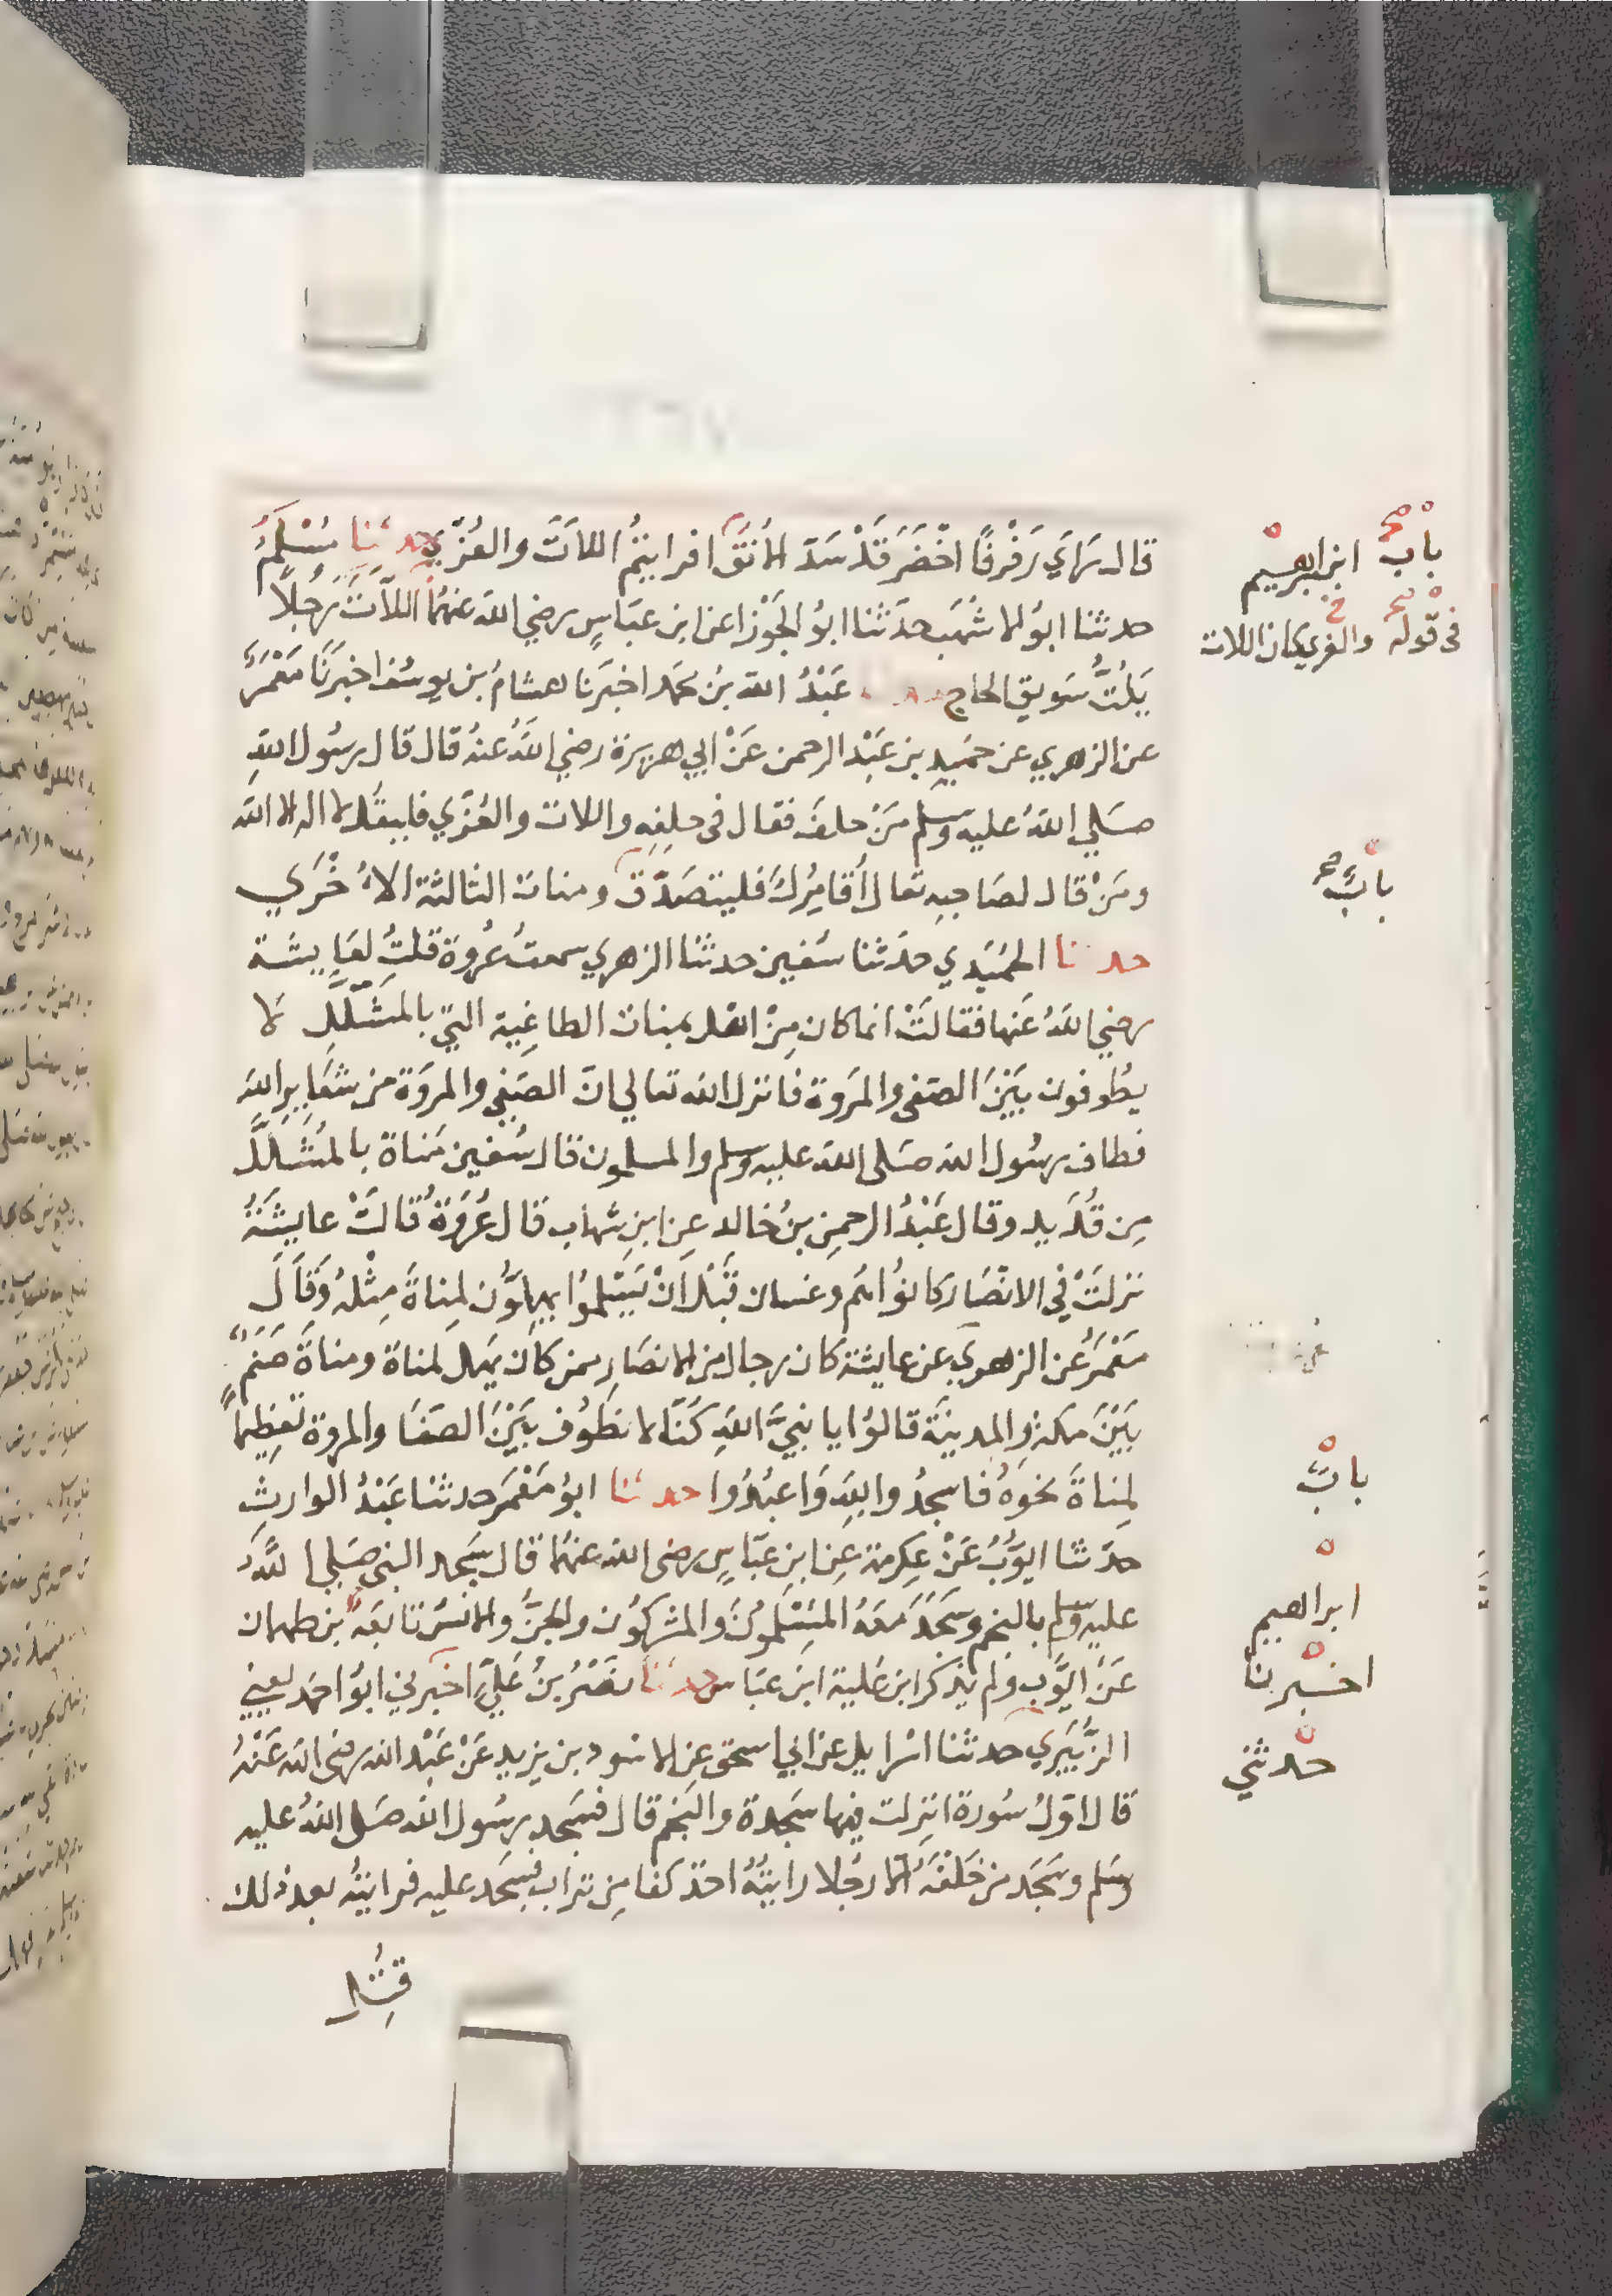 قال رَاي رَفْرفًا اخْضَرَ قَدْ سَدّ الأُفقَ افرايتُم اللاَتَ والعُزّي حدثنا مُسْلِمُ
حدثنا ابوُ الاشْهَب حدَثنا ابوُ الجَوْزا عن ابن عبَاسٍ رضي الله عنهُما اللاَتَ رَجُلًا
يَلتُّ سَويق الحاج عَبْدُ الله بنُ محمد اخبَرنا هشامُ بن يوسُف اخبَرنَا مَعْمَرٌ
عن الزهري عن حمَيدِ بن عَبْد الرحمن عَنْ ابي هريرة رضي اللهُ عنهُ قال قال رسُول اللهِ
صَلي اللهُ عليه وسَلم مَنْ حلفَ فقال في حلِفِهِ واللات والعُزّي فليقل لا اله الا الله
ومَنْ قال لصَاحبِه تعال أُقامِرُكَ فليتصَدّق ومناة الثالثة الاُخْرَي
حدثنا الحمَيدي حدَثنا سُفين حدثنا الزهري سمعتُ عُروة قلتُ لعَايشَة
رضي اللهُ عَنها فقالتْ انما كان مِنْ اهَل بمناة الطاغِية التي بالمشَلّلِ لا
يطُوفون بَيْنَ الصَفي والمَروة فانزل الله تعالي انّ الصَفي والمروَة من شَعَايرِ الله
فطاف رسُول الله صَلى الله عليه وسلم والمسلمون قال سُفين مَناة بالمُشَلَّل
مِن قُدَيد وقال عَبْدُ الرحمنِ بنُ خالد عِن ابنِ شهاب قال عُرْوَةُ قالتْ عايشَةُ
نزلتْ في الانْصَار كانوُا هُم وغسان قَبْل اَنْ يُسْلمُوا يهِلوُّن لمِناةَ مِثْلهُ وقَالَ
مَعْمَرُ عن الزهري عن عايشة كان رجال من الانصَارِ ممن كاَن يهل لمناة ومناةَ صَنَم
بَيْنَ مكة والمدينَة قالوُا يا نبيَّ اللهِ كنّا لا نطوُف بَيْنَ الصَفَا والمروة تعظِيمًا
لمِناةَ نحوَهُ فاسجدُوا للهِ وَاعبُدُوا حدثنا ابوُ مَعْمَر حدثنا عَبْدُ الوارِث
حدَثنا ايوّبُ عَنْ عِكرمة عِن ابنِ عبّاسٍ رضى الله عنهُما قال سَجد النبي صَلي اللهُ
عليه وسَلم بالنجم وسَجَدَ مَعَهُ المسْلموُنَ والمشركوُن والجنُّ والانسُ تابعَه بن طهمان
عَنْ ايوّب ولم يذكر ابن عُلية ابن عبَاس حدثنا نصْرُ بنُ عَليٍ اخبرني ابوُ احمَد يعني
الزُّبَيري حدثنا اسْرايل عن ابي اسحق عن الاسود بن يزيد عَنْ عَبْد الله رضي الله عَنْهُ
قال اوّلُ سُورة انزِلت فيها سَجدة والنجم قال فسَجد رسُول الله صَلى اللهُ عليه
وسَلم وسَجَد من خَلْفَهُ الّا رجُلا رايتُهُ اخذ كفا مِن تراب فسَجَد عليه فرايتُه بعد ذلك
قُتِلَ
بابٌ ابن ابرهيم
في قوله والعزي كان اللات
بابٌ
بابٌ
ابراهيم
اخبرنا
حدثني